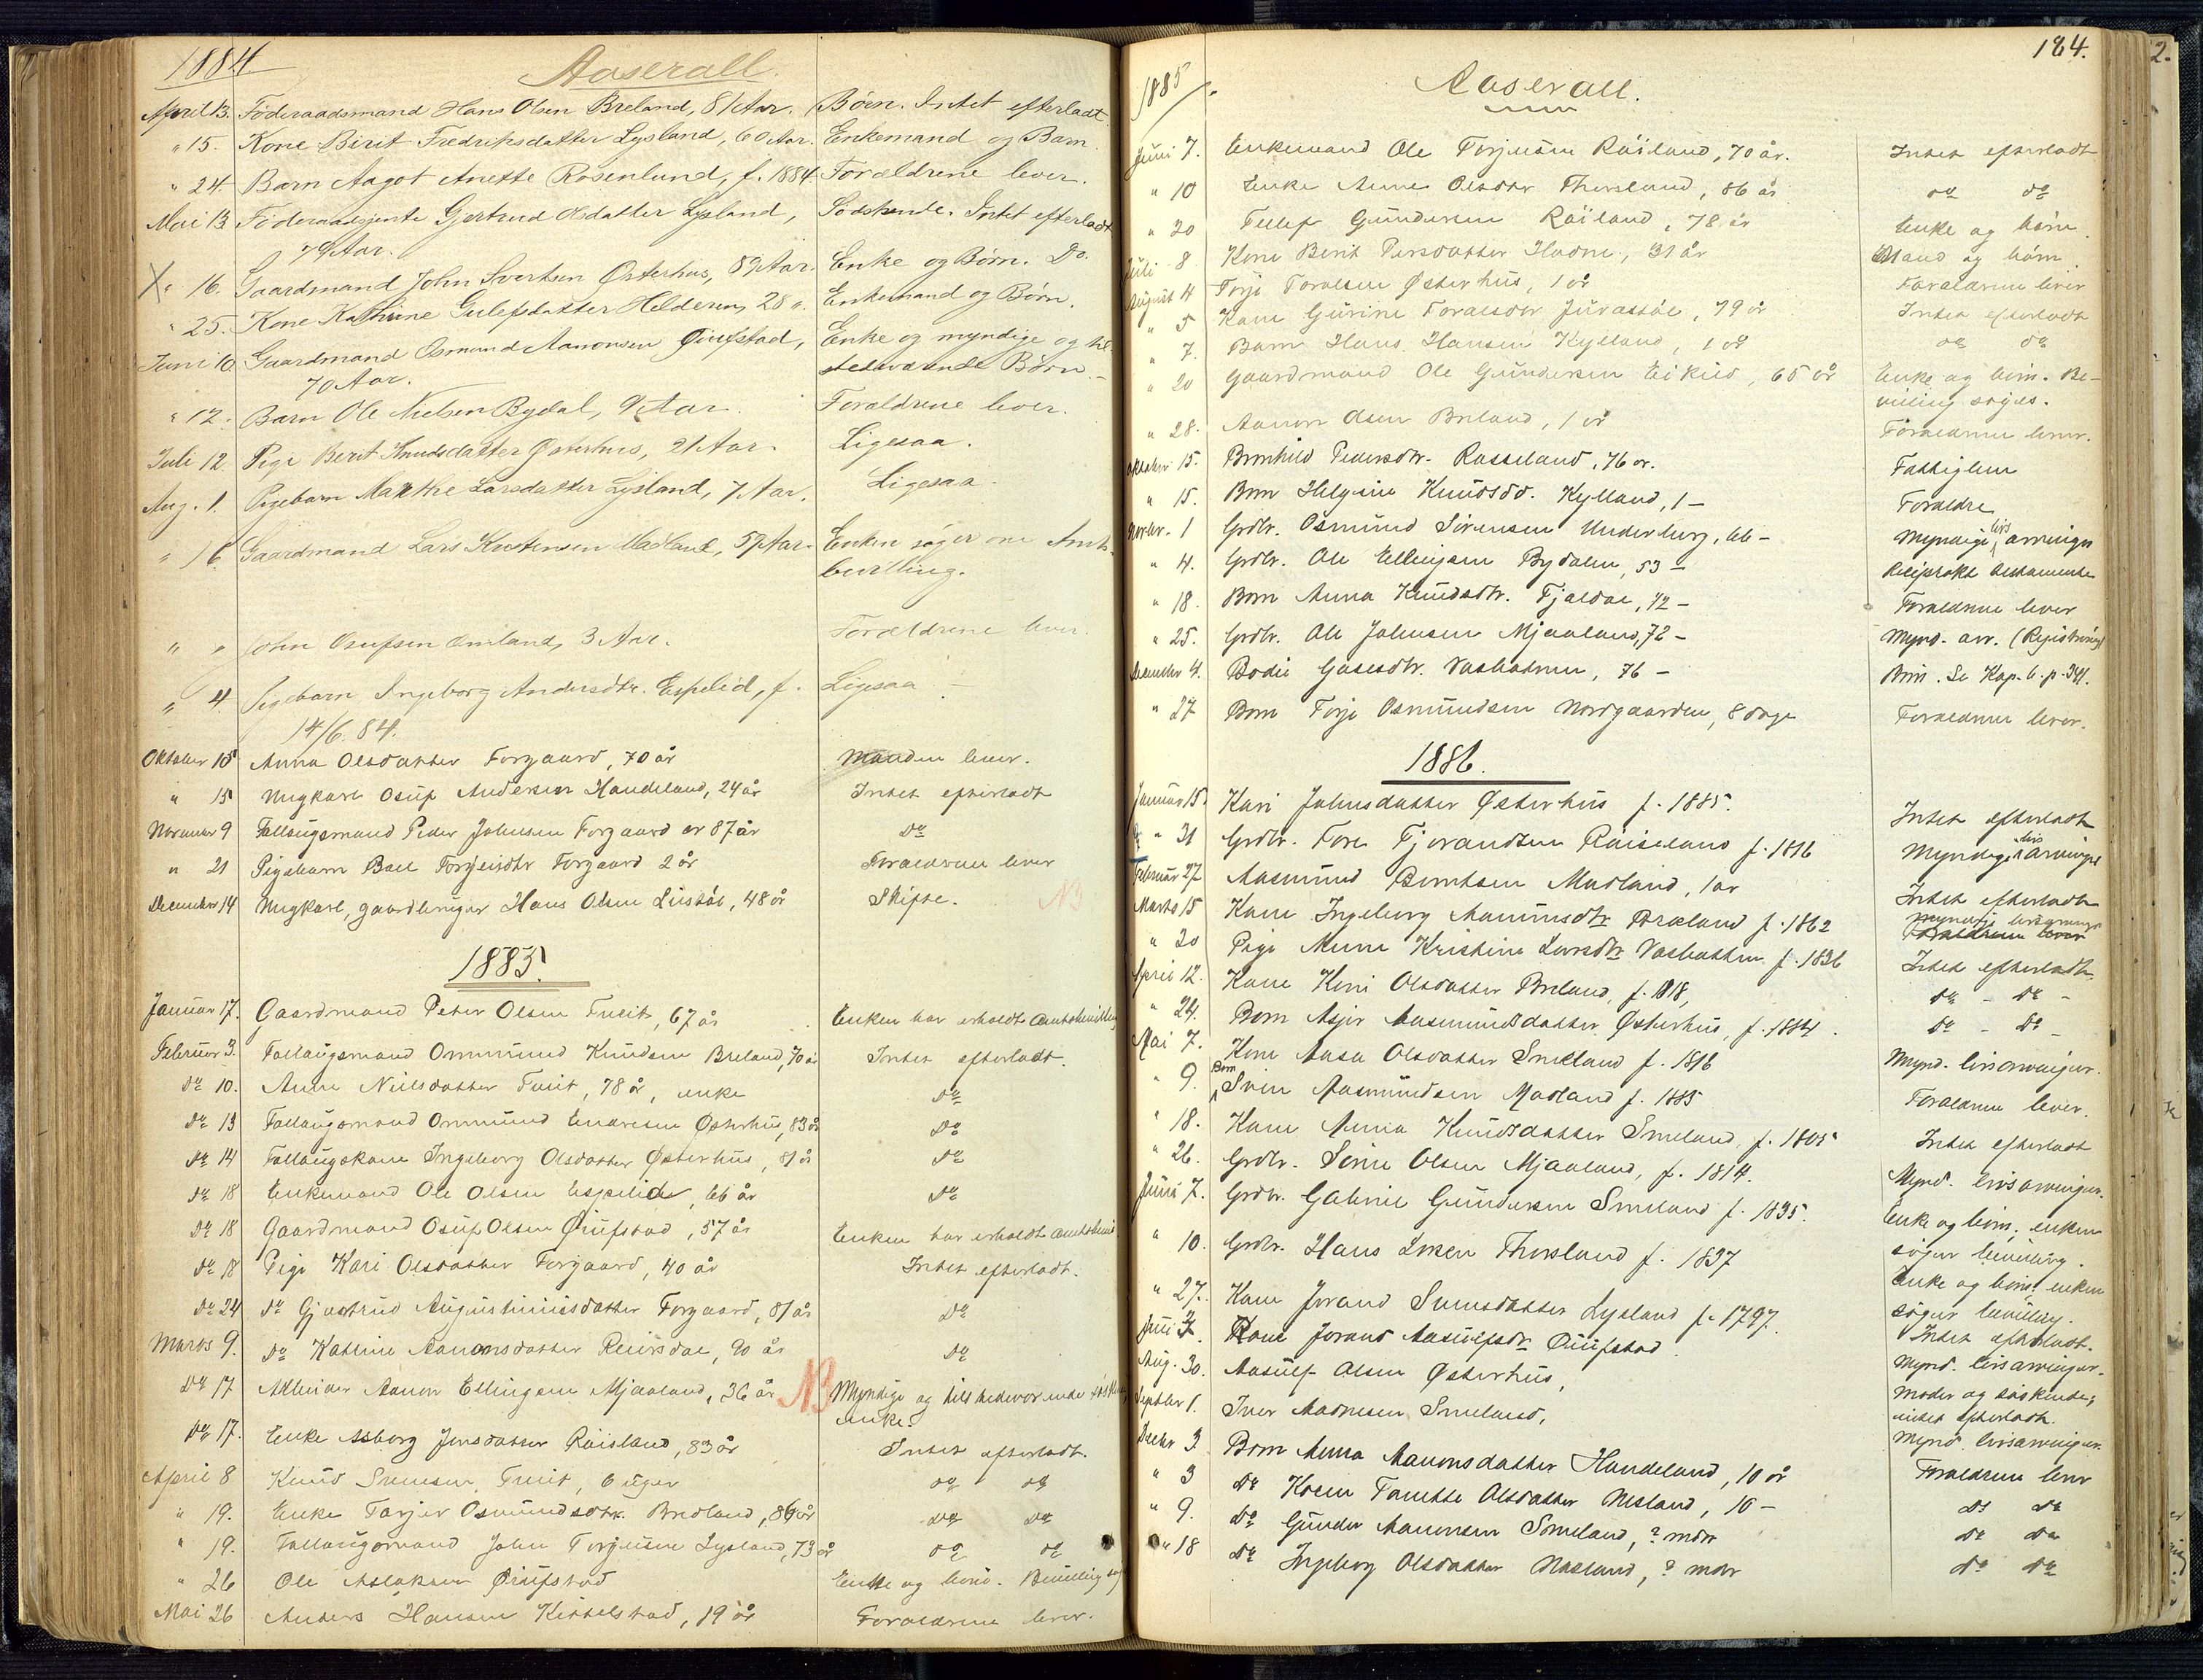 1884
Aaserall.
April 13. Föderaadsmand Hans Olsen Breland, 81 Aar. Börn. Intet efterladt
" 15. Kone Birit Fredriksdatter Lysland, 60 Aar. Enkemand og Barn.
" 24 Barn Aagot Anette Rosenlund, f. 1884 Forældrene lever.
Mai 13 Föderaadsjente Gjertrud Olsdatter Lysland, Södskende. Intet efterladt
79 Aar.
X " 16. Gaardmand John Svertsen Østerhus, 89 Aar. Enke og Børn. Do.
" 25. Kone Kathrine Gulefsdatter Helderen, 28 ". Enkemand og Børn.
Juni 10 Gaardmand Osmund Aanonsen Øiufstad, Enke og myndige og til-
70 Aar. stedværende Børn.
" 12. Barn Ole Nielsen Bydal, 9 Aar. Forældrene lever.
Juli 12 Pige Berit Knudsdatter Østerhus, 21 Aar. Ligesaa.
Aug. 1. Pigebarn Marthe Larsdatter Lysland, 7 Aar. Ligesaa.
" 16 Gaardmand Lars Knutensen Madland, 57 Aar. Enken søger om Amts-
bevilling.
" " John Osufsen Omland, 3 Aar. Forældrene lever.
" 4 Pigebarn Ingeborg Andersdtr. Espelid, f. Ligesaa
14/6 84.
Oktober 15 Anna Olsdatter Forgaard, 70 år Manden lever.
" 15 Ungkarl Osuf Andersen Haudeland, 24 år Intet efterladt
November 9 Fallaugsmand Peder Johnsen Forgaard er 87 år Do
" 21 Pigebarn Forgaard 2 år Forældrene lever
December 14 Ungkarl, gaardbruger Hans Olsen Lieskår, 48 år Skifte. NB
1885.
Januar 17. Gaardmand Peter Olsen Tveit, 67 år Enken har erholdt Amtsbevilling
Februar 3. Fallaugsmand Ommund Knudsen Breland, 70 år Intet efterladt.
Do 10. Anne Nielsdatter Tveit, 78 år, enke Do
Do 13 Fallaugsmand Ommund Endresen Østerhus, 83 år Do
Do 14 Fallaugskone Ingeborg Olsdatter Østerhus, 81 år Do
Do 18 Enkemand Ole Olsen Espelid, 66 år Do
Do 18 Gaardmand Osuf Olsen Øiufstad, 57 år Enken har erholdt amtsbevil
Do 18 Pige Kari Olsdatter Forgaard, 40 år Intet efterladt.
Do 24 Do Gjertrud Augustinusdatter Forgaard, 81 år Do
Marts 9. Do Kathrine Aanonsdatter Reiersdal, 20 år Do
Do 17 Aanon Ellingsen Mjaaland, 36 år NB Myndige og tilstedeværende
enke.
Do 17. Enke Asborg Jensdatter Röisland, 83 år Intet efterladt.
April 8 Knud Svensen Tveit, 6 uger do do
" 19. Enke Torjer Osmundsdtr. Bredland, 86 år Do Do
" 19. Fallaugsmand John Torjusen Lysland, 73 år do do
" 26 Ole Aslaksen Øiufstad Enke og börn. Bevilling
Mai 26 Anders Hansen Kittelstad, 19 år Forældrene lever.
184.
1885.
Aaserall.
Juni 7. Enkemand Ole Torjusen Röiland, 70 år. Intet efterladt
" 10 Enke Anne Olsdtr Thorsland, 86 år do do
" 20 Tellef Gundersen Röiland, 78 år Enke og börn.
Juli 8 Kone Berit Persdatter Hadne, 31 år Mand og börn.
August 4 Torje Toralsen Østerhus, 1 år Forældrene lever
" 5 Kone Gurine Toralsdtr Juvassöe, 79 år Intet efterladt
" 7. Barn Hans Hansen Kylland, 1 år do do
" 20 Gaardmand Ole Gundersen Eikild, 65 år Enke og börn. Be-
villing søges.
" 28. Aanon Olsen Breland, 1 år Forældrene lever.
Oktober 15. Bronhild Pedersdtr. Rosseland, 76 år. Fattiglem
" 15. Barn Helgine Knudsdtr. Kylland, 1 — Forældre
Novbr. 1 Grdbr. Osmund Sörensen Underberg, 66 — Myndige livsarvinger
" 4. Grdbr. Ole Ellingsen Bydalen, 53 — Reciprokt testamente
" 18. Barn Anna Knudsdtr. Fjeldal, 12 — Forældrene lever
" 25. Grdbr. Ole Johnsen Mjaaland, 72 — Mynd. arv. (Registrering)
December 4. Bodil Gasesdtr. Vasbakken, 76 — Börn. Se Kop. 6. p. 341.
" 27 Barn Torje Osmundsen Nordgaarden, 8 dage Forældrene lever.
1886.
Januar 15. Kari Johnsdatter Østerhus f. 1885. Intet efterladt
" 31 Grdbr. Tore Tjorandsen Röiseland f. 1816 Myndige livsarvinger
Februar 27 Aasmund Berntsen Madland, 1 år Intet efterladt
Marts 15 Kone Ingeborg Aanunsdtr Bræland f. 1862 myndige livsarvinger
Forældrene lever
" 20 Pige Anne Kristine Larsdtr Vasbakken f. 1836 Intet efterladt
April 12. Kone Kari Olsdatter Breland, f. 1818, do – do –
" 24. Barn Asjer Aasmundsdatter Østerhus, f. 1884. do – do –
Mai 7. Kone Aasa Olsdatter Smeland f. 1816 Mynd. livsarvinger.
" 9. Barn Svein Aasmundsen Madland f. 1885 Forældrene lever.
" 18. Kone Anna Knudsdatter Smeland, f. 1805 Intet efterladt
" 26. Grdbr. Sörine Olsen Mjaaland, f. 1814. Mynd. livsarvinger.
Juni 7. Grdbr. Gabriel Gundersen Smeland f. 1835. Enke og börn; enken
søger bevilling.
" 10. Grdbr. Hans Larsen Thorsland f. 1837 Enke og börn; enken
søger bevilling.
" 27. Kone Jorand Svensdatter Lysland f. 1797. Intet efterladt.
Juli 7. Kone Jorand Aasulfsdtr Øiufstad Mynd. livsarvinger.
Aug. 30. Aasulf Olsen Østerhus, Moder og söskende;
intet efterladt.
Septbr 1. Iver Aadnesen Smeland, Mynd. livsarvinger.
Decbr 3. Barn Anna Aanonsdatter Haudeland, 10 år Forældrene lever
" 3 Do Karen Tomette Olsdatter Nesland, 10 – do do
" 9. Do Gunder Aanonsen Smeland, ? mdr do do
" 18 Do Ingeborg Olsdatter Nesland, ? mdr do do